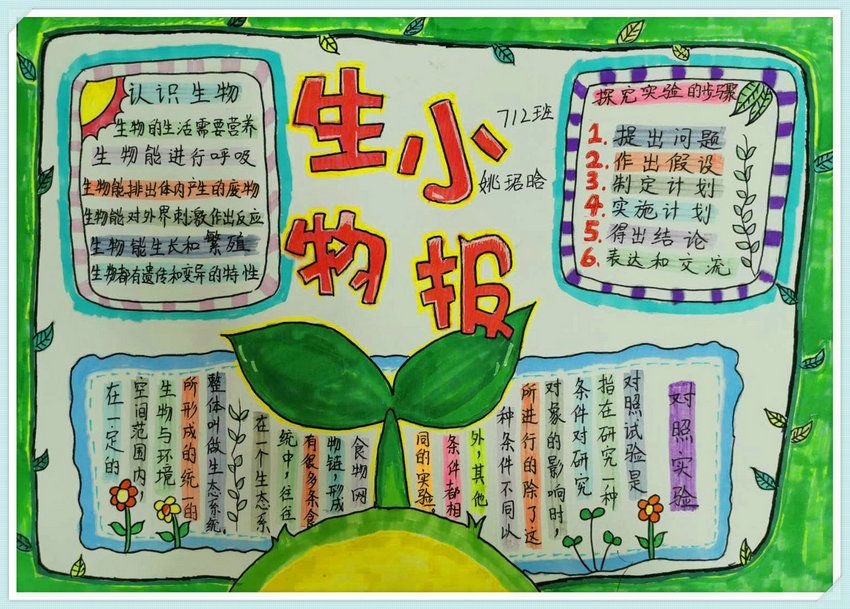 生物
小报
712班
姚珺晗
认识生物
生物的生活需要营养
生物能进行呼吸
生物能排出体内产生的废物
生物能对外界刺激作出反应
生物能生长和繁殖
生物都有遗传和变异的特性
探究实验的步骤
1. 提出问题
2. 作出假设
3. 制定计划
4. 实施计划
5. 得出结论
6. 表达和交流
在一定的
空间范围内，
生物与环境
所形成的统一的
整体叫做生态系统。
在一个生态系
统中，往往
有很多条食
物链，形成
食物网
对照实验
对照试验是
指在研究一种
条件对研究
对象的影响时，
所进行的除了这
种条件不同以
外，其他
条件都相
同的实验